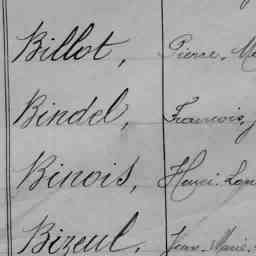 Billot, Pierre-
Bindel, François,
Binois, Henri-
Bizeul, Jean-Marie-